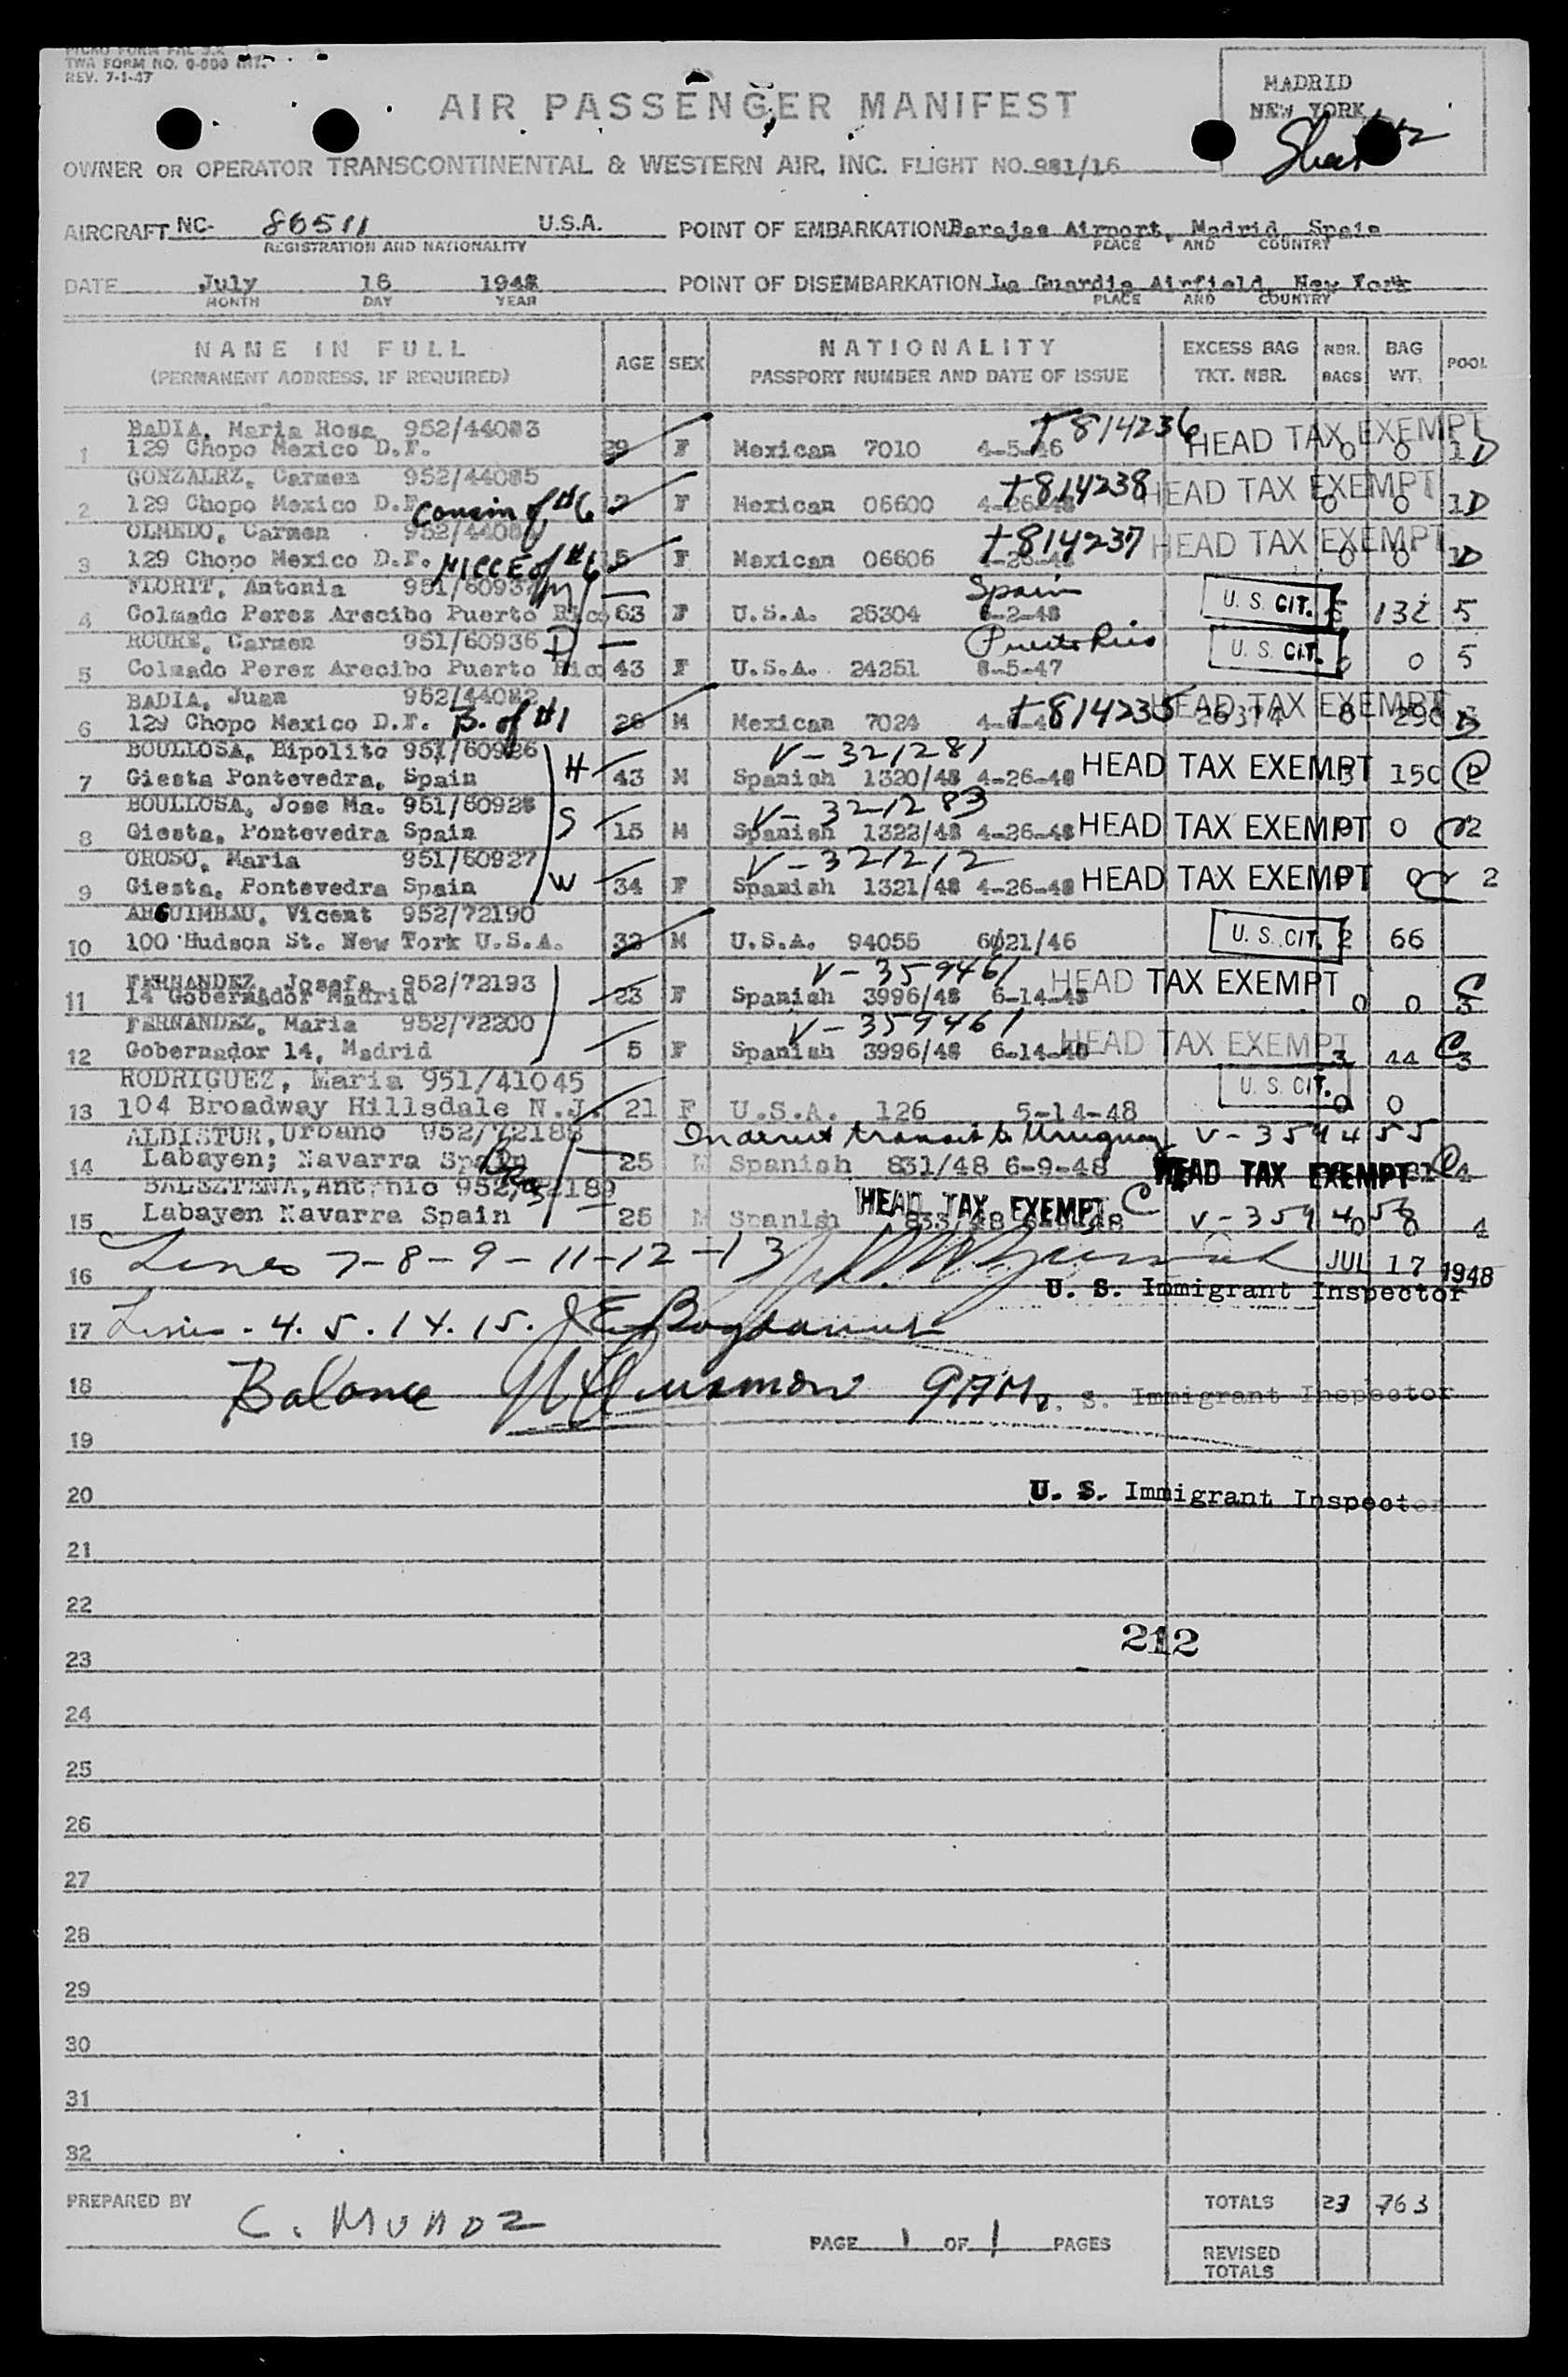 MICRO FORM PAL 3.2
TWA FORM NO. 0-000 INT.
REV. 7-1-47
MADRID
NEW YORK
AIR PASSENGER MANIFEST
OWNER OR OPERATOR TRANSCONTINENTAL & WESTERN AIR, INC. FLIGHT NO. 981/16
AIRCRAFT NC- 86511 U.S.A. POINT OF EMBARKATION Barajas Airport, Madrid, Spain
REGISTRATION AND NATIONALITY PLACE AND COUNTRY
DATE July 16 1948 POINT OF DISEMBARKATION La Guardia Airfield, New York
MONTH DAY YEAR PLACE AND COUNTRY
NAME IN FULL AGE SEX NATIONALITY EXCESS BAG NBR. BAG POOL
(PERMANENT ADDRESS, IF REQUIRED) PASSPORT NUMBER AND DATE OF ISSUE TKT. NBR. BAGS WT.
BADIA, Maria Rosa 952/44083 T 814236
1 129 Chopo Mexico D.F. 29 F Mexican 7010 4-5-46 HEAD TAX EXEMPT 0 0 1 D
GONZALRZ, Carmen 952/44085 T 814238
2 129 Chopo Mexico D.F. Cousin of #6 F Mexican 06600 4-26-48 HEAD TAX EXEMPT 0 0 1 D
OLMEDO, Carmen T 814237
3 129 Chopo Mexico D.F. NIECE of #6 F Mexican 06606 HEAD TAX EXEMPT 0 0 D
FLORIT, Antonia Spain
4 Colmado Perez Arecibo Puerto Rico 63 F U.S.A. 25304 U. S. CIT. 132 5
ROURE, Carmen 951/60936 D Puerto Rico
5 Colmado Perez Arecibo Puerto Rico 43 F U.S.A. 24251 8-5-47 U. S. CIT. 0 0 5
BADIA, Juan 952/44082 T 814235
6 129 Chopo Mexico D.F. B. of #1 M Mexican 7024 HEAD TAX EXEMPT
BOULLOSA, Hipolito 951/60926 V-321281
7 Giesta Pontevedra, Spain H 43 M Spanish 1320/48 4-26-48 HEAD TAX EXEMPT 3 150
BOULLOSA, Jose Ma. 951/60928 V-321283
8 Giesta, Pontevedra Spain S 15 M Spanish 1322/48 4-26-48 HEAD TAX EXEMPT 0 0 2
OROSO, Maria 951/60927 V-321212
9 Giesta, Pontevedra Spain W 34 F Spanish 1321/48 4-26-48 HEAD TAX EXEMPT 0 0 2
ARGUIMBAU, Vicent 952/72190
10 100 Hudson St. New York U.S.A. 32 M U.S.A. 94055 6/21/46 U. S. CIT. 2 66
FERNANDEZ, Josefa 952/72193 V-359461
11 14 Gobernador Madrid 23 F Spanish 3996/48 6-14-48 HEAD TAX EXEMPT 0 0 C 3
FERNANDEZ, Maria 952/72200 V-359461
12 Gobernador 14, Madrid 5 F Spanish 3996/48 6-14-48 HEAD TAX EXEMPT 3 44 C 3
RODRIGUEZ, Maria 951/41045
13 104 Broadway Hillsdale N.J. 21 F U.S.A. 126 5-14-48 U. S. CIT. 0 0
ALBISTUR, Urbano 952/72188 In direct transit to Uruguay V-359455
14 Labayen; Navarra Spain 25 M Spanish 831/48 6-9-48 HEAD TAX EXEMPT
BALEZTENA, Antonio 952/72189
15 Labayen Navarra Spain 25 M Spanish HEAD TAX EXEMPT C 833/48 6-9-48 0 0 4
16 Lines 7-8-9-11-12-13 JUL 17 1948
U. S. Immigrant Inspector
17 Lines. 4. 5. 14. 15.
18 Balance U. S. Immigrant Inspector
19
20 U. S. Immigrant Inspector
21
22
212
23
24
25
26
27
28
29
30
31
32
PREPARED BY C. MUÑOZ TOTALS 23 763
PAGE 1 OF 1 PAGES
REVISED
TOTALS